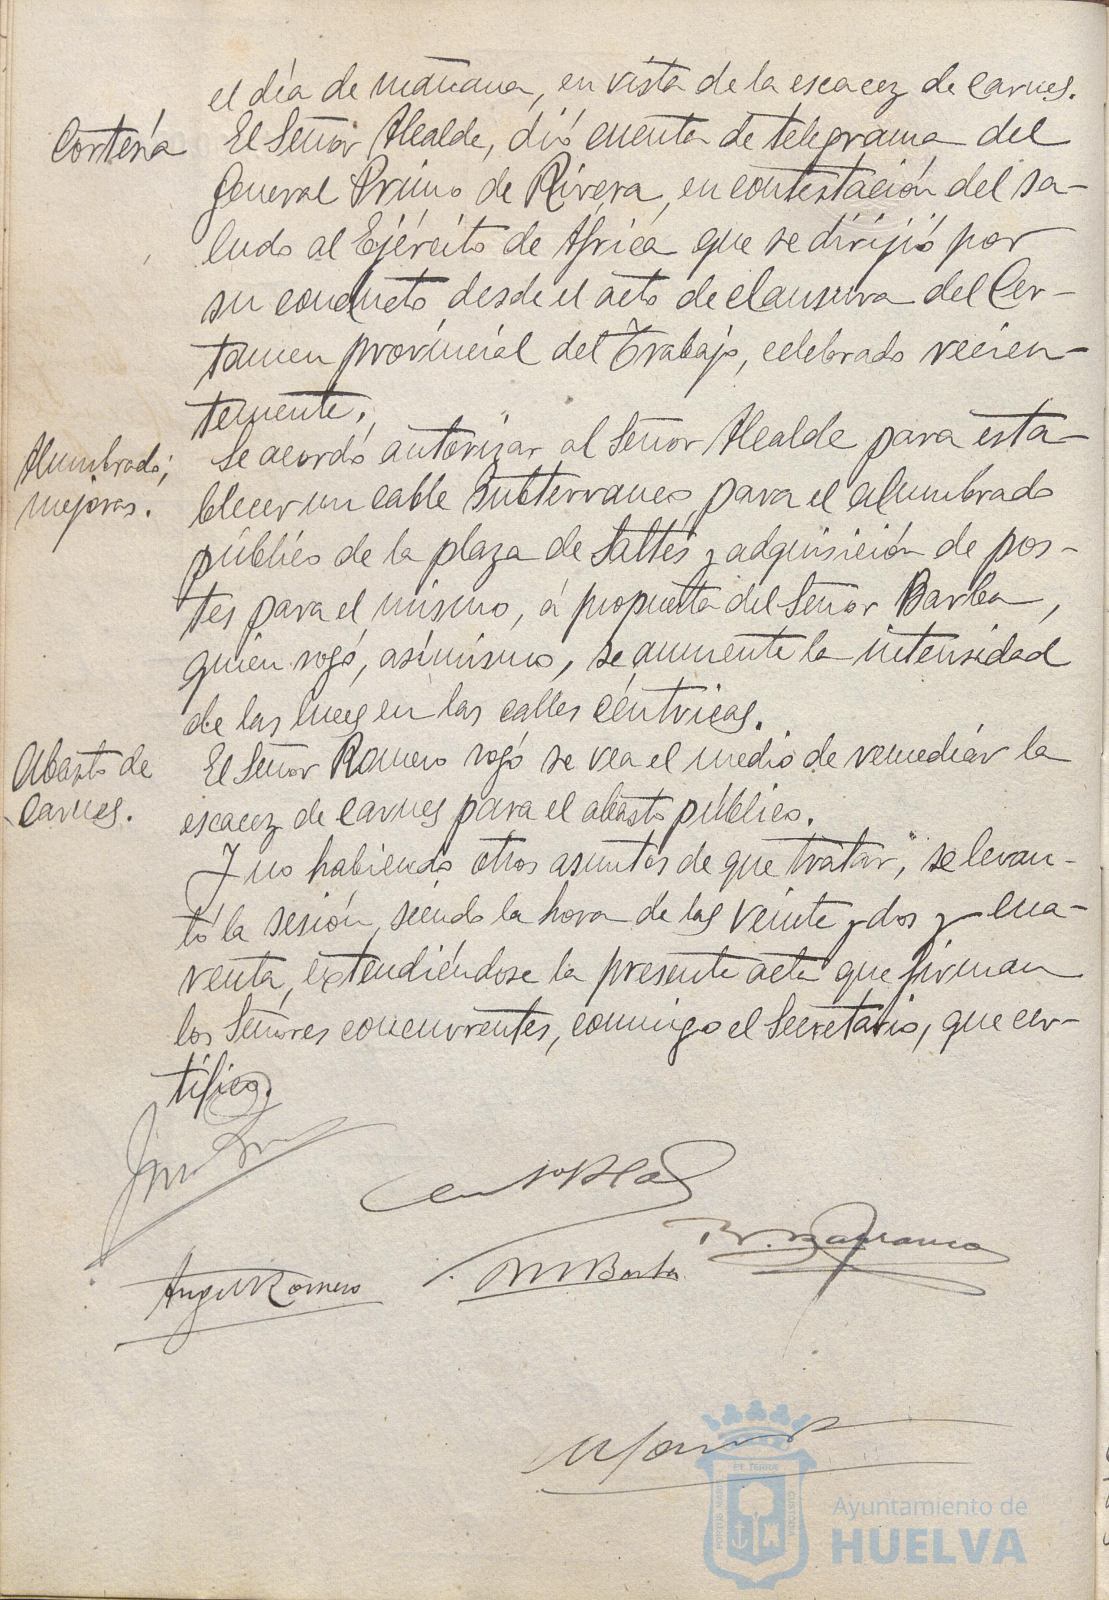 el día de mañana, en vista de la escacez de carnes.
Cortesía
El Señor Alcalde, dió cuenta de telegrama del
General Primo de Rivera, en contestación del sa-
ludo al Ejército de África que se dirijió por
su conducto, desde el acto de clausura del Cer-
tamen provincial del Trabajo, celebrado recien-
temente.
Alumbrado;
mejoras.
Se acordó autorizar al Señor Alcalde para esta-
blecer un cable subterraneo, para el alumbrado
público de la plaza de Saltés y adquisición de pos-
tes para el mismo, á propuesta del Señor Barba,
quien rogó, asimismo, se aumente la intensidad
de las luces en las calles céntricas.
Abasto de
carnes.
El Señor Romero rogó se vea el medio de remediar la
escacez de carnes para el abasto público.
Y no habiendo otros asuntos de que tratar, se levan-
tó la sesión, siendo la hora de las veinte y dos y cua-
renta, extendiéndose la presente acta que firman
los Señores concurrentes, conmigo el Secretario, que cer-
tífico.
Angel Romero
M Barba
PORTUS MARIS ET TERRAE CUSTODIA
Ayuntamiento de
HUELVA